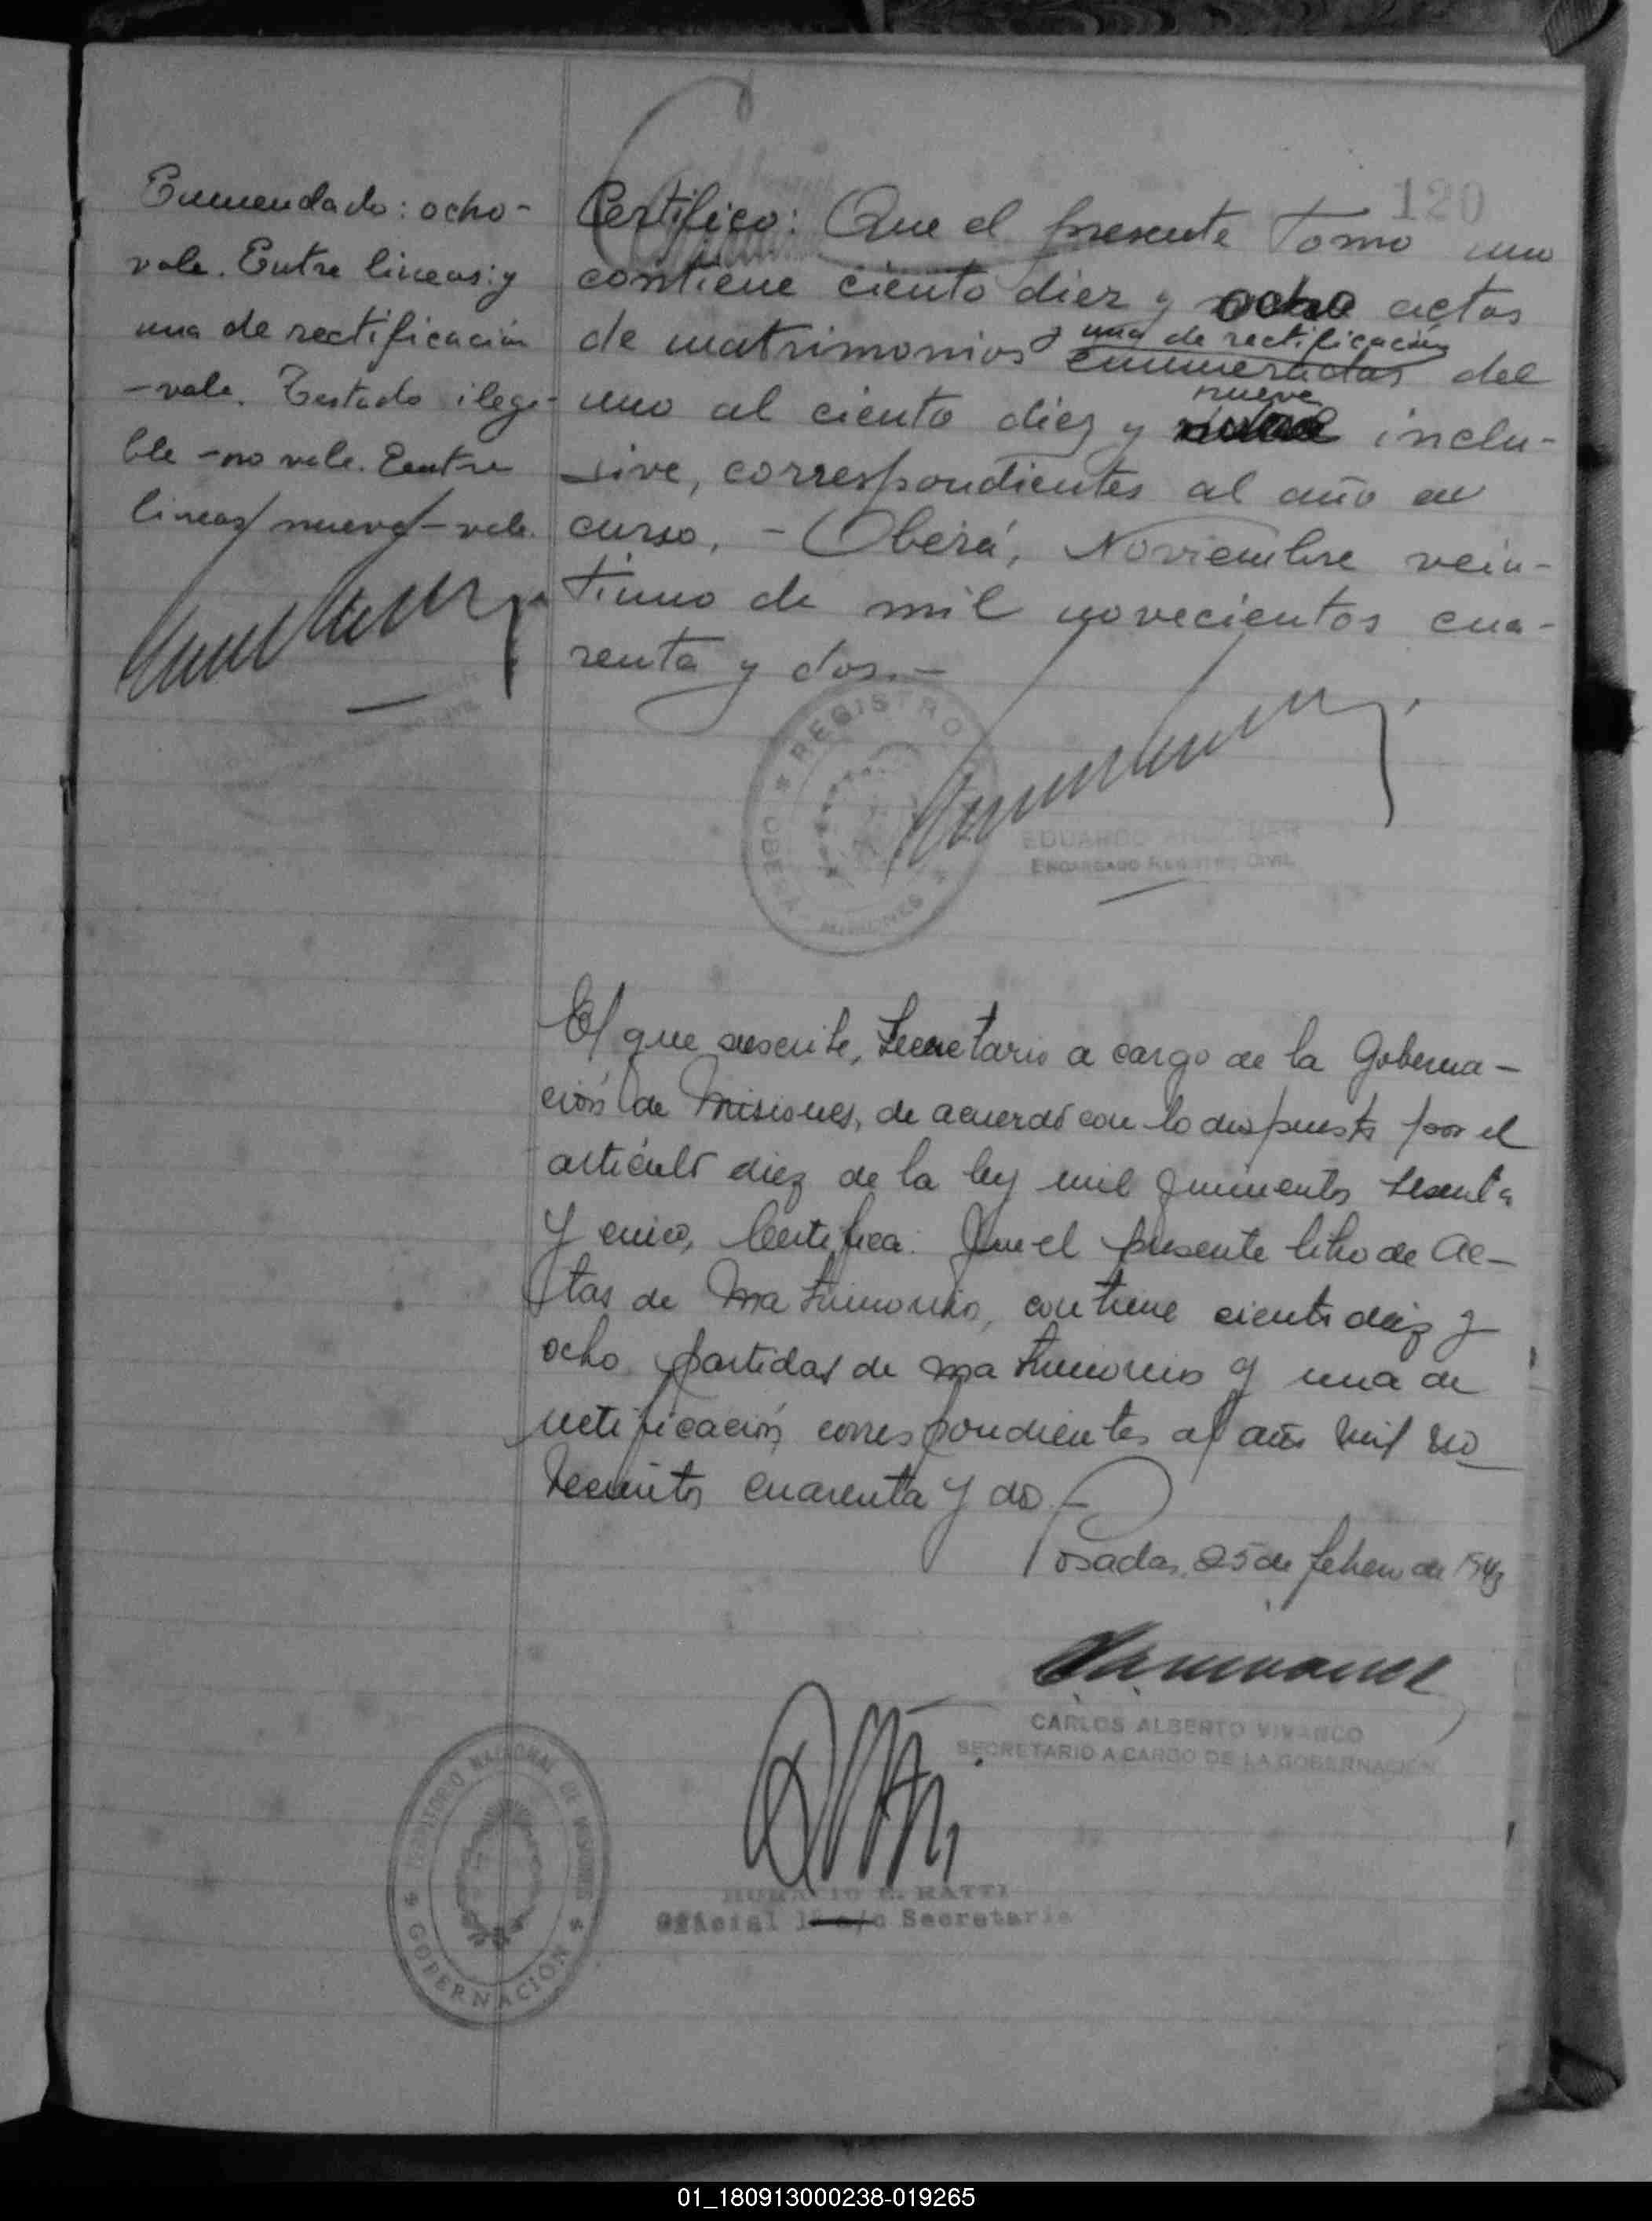 120
Enmendado: ocho-
vale. Entre lineas: y
una de rectificación
-vale. Testado ilegi-
ble -no vale. Entre
lineas/ nueve/-vale.
Certifico: Que el presente Tomo uno
contiene ciento diez y ocho actas
de matrimonios y una de rectificación
enumeradas del
nueve
uno al ciento diez y inclu-
sive, correspondientes al año en
curso, - Oberá, Noviembre vein-
tiuno de mil novecientos cua-
renta y dos.-
REGISTRO
OBERÁ - MISIONES
EDUARDO
ENCARGADO REGISTRO CIVIL
El que suscribe, Secretario a cargo de la Goberna-
ción de Misiones, de acuerdo con lo dispuesto por el
artículo diez de la ley mil quinientos sesenta
y cinco, Certifica: Que el presente libro de Ac-
tas de Matrimonios, contiene ciento diez y
ocho partidas de matrimonios y una de
rectificación correspondientes al año mil no
vecientos cuarenta y dos.-
Posadas, 25 de febrero de 1943
CARLOS ALBERTO VIVANCO
SECRETARIO A CARGO DE LA GOBERNACIÓN
TERRITORIO NACIONAL DE MISIONES
GOBERNACION
RATTI
Oficial 1º a/c Secretaria
01_180913000238-019265